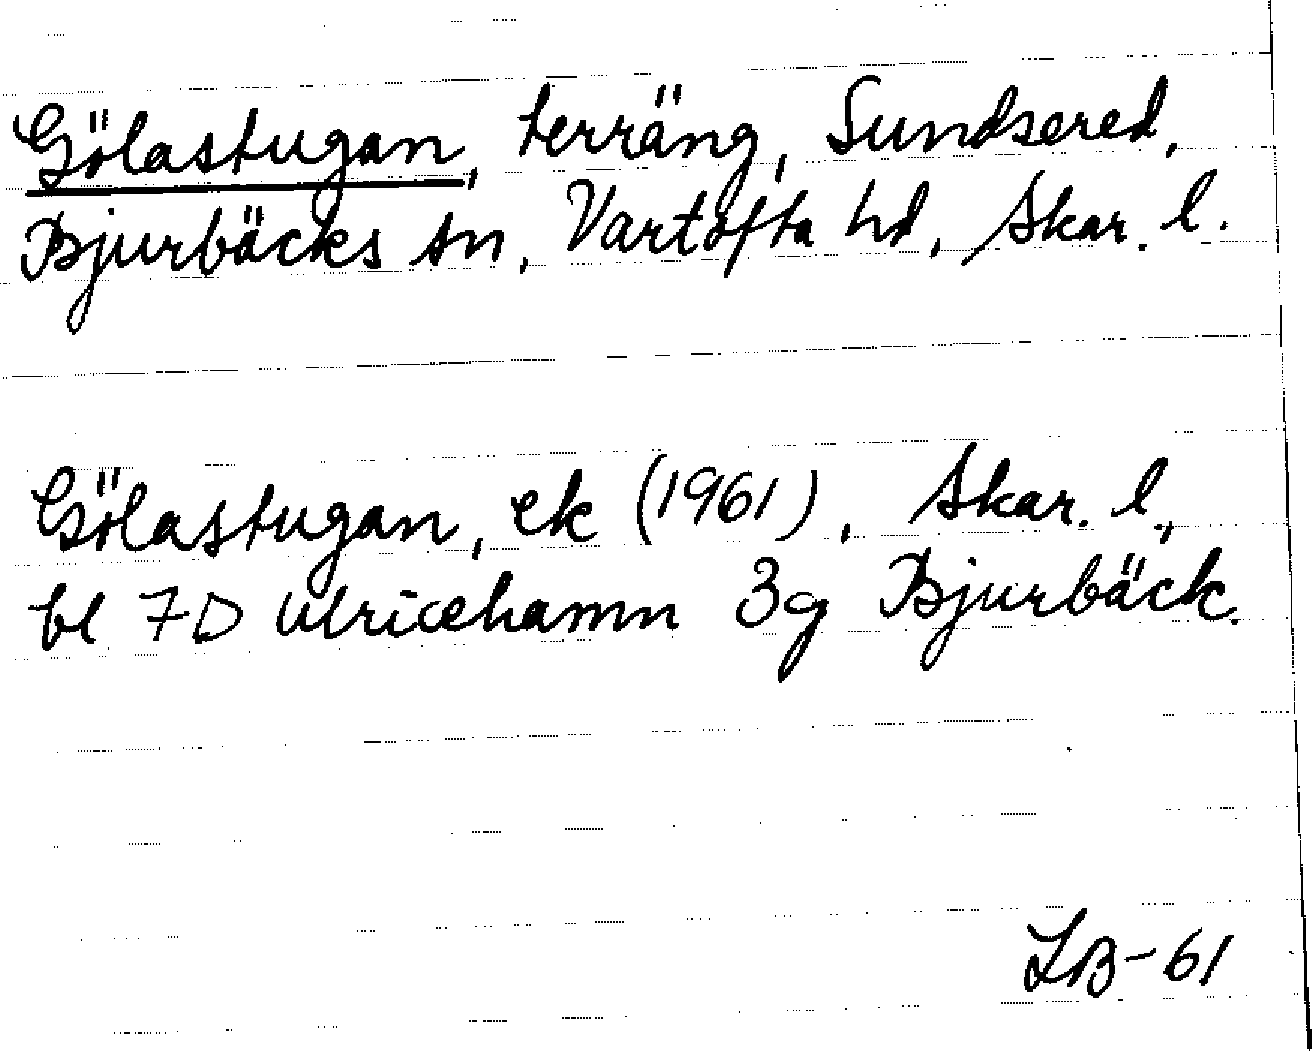 Gölastugan, terräng, Sundsered,
Bjurbäcks sn, Vartofta hd, Skar. l.
Gölastugan, ek (1961), Skar. l.,
bl 7D Ulricehamn 3g Bjurbäck.
LB-61